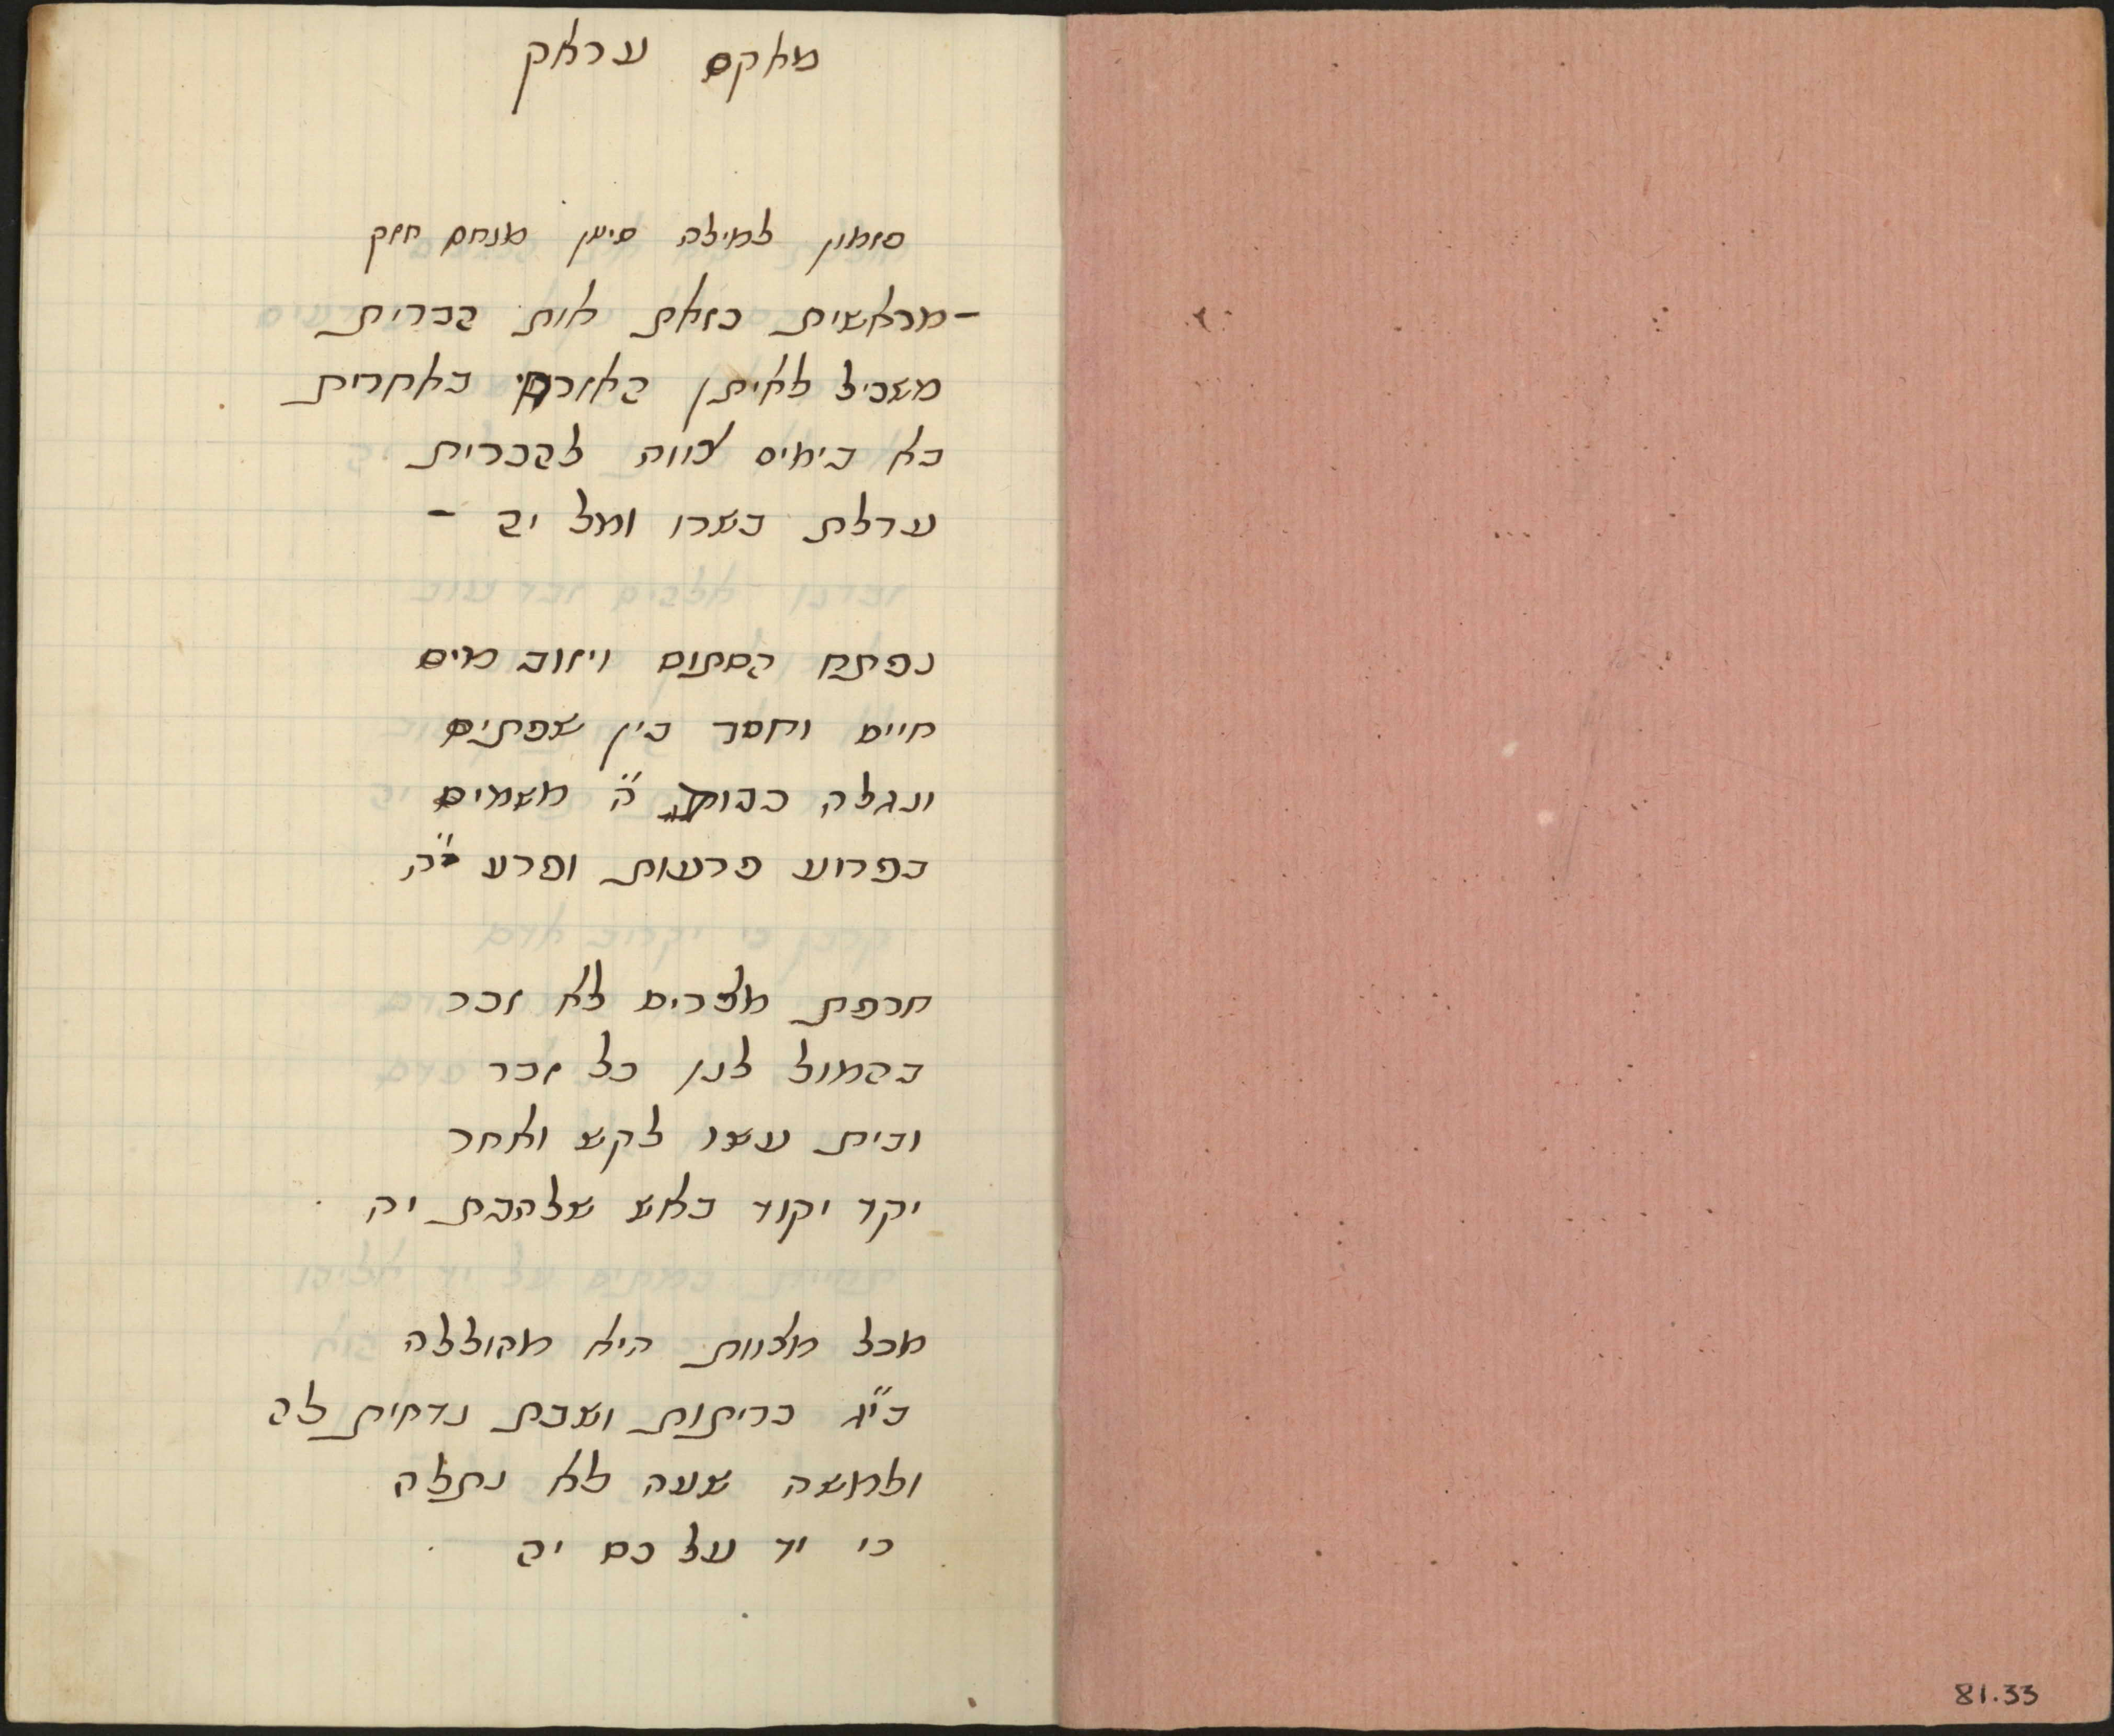 מאקם עראק
פזמון למילה סימן מנחם חזק
־מראשית כזאת אות הברית
משכיל לאיתן האזרחי באחרית
בא בימים צווה להכרית
ערלת בשרו ומל יה ־
נפתח הסתום ויזוב מים
חיים וחסד בין שפתים
ונגלה כבוד ה״ משמים
בפרוע פרעות ופרע י״ה
חרפת מצרים לא זכר
בהמול לנו כל זכר
ובית עשו לקש ואחר
יקד יקוד באש שלהבת יה
מכל מצוות היא מהוללה
בי״ג בריתות ושבת נדחית לה
ולמשה שעה לא נתלה
כי יד על כס יה
81.33